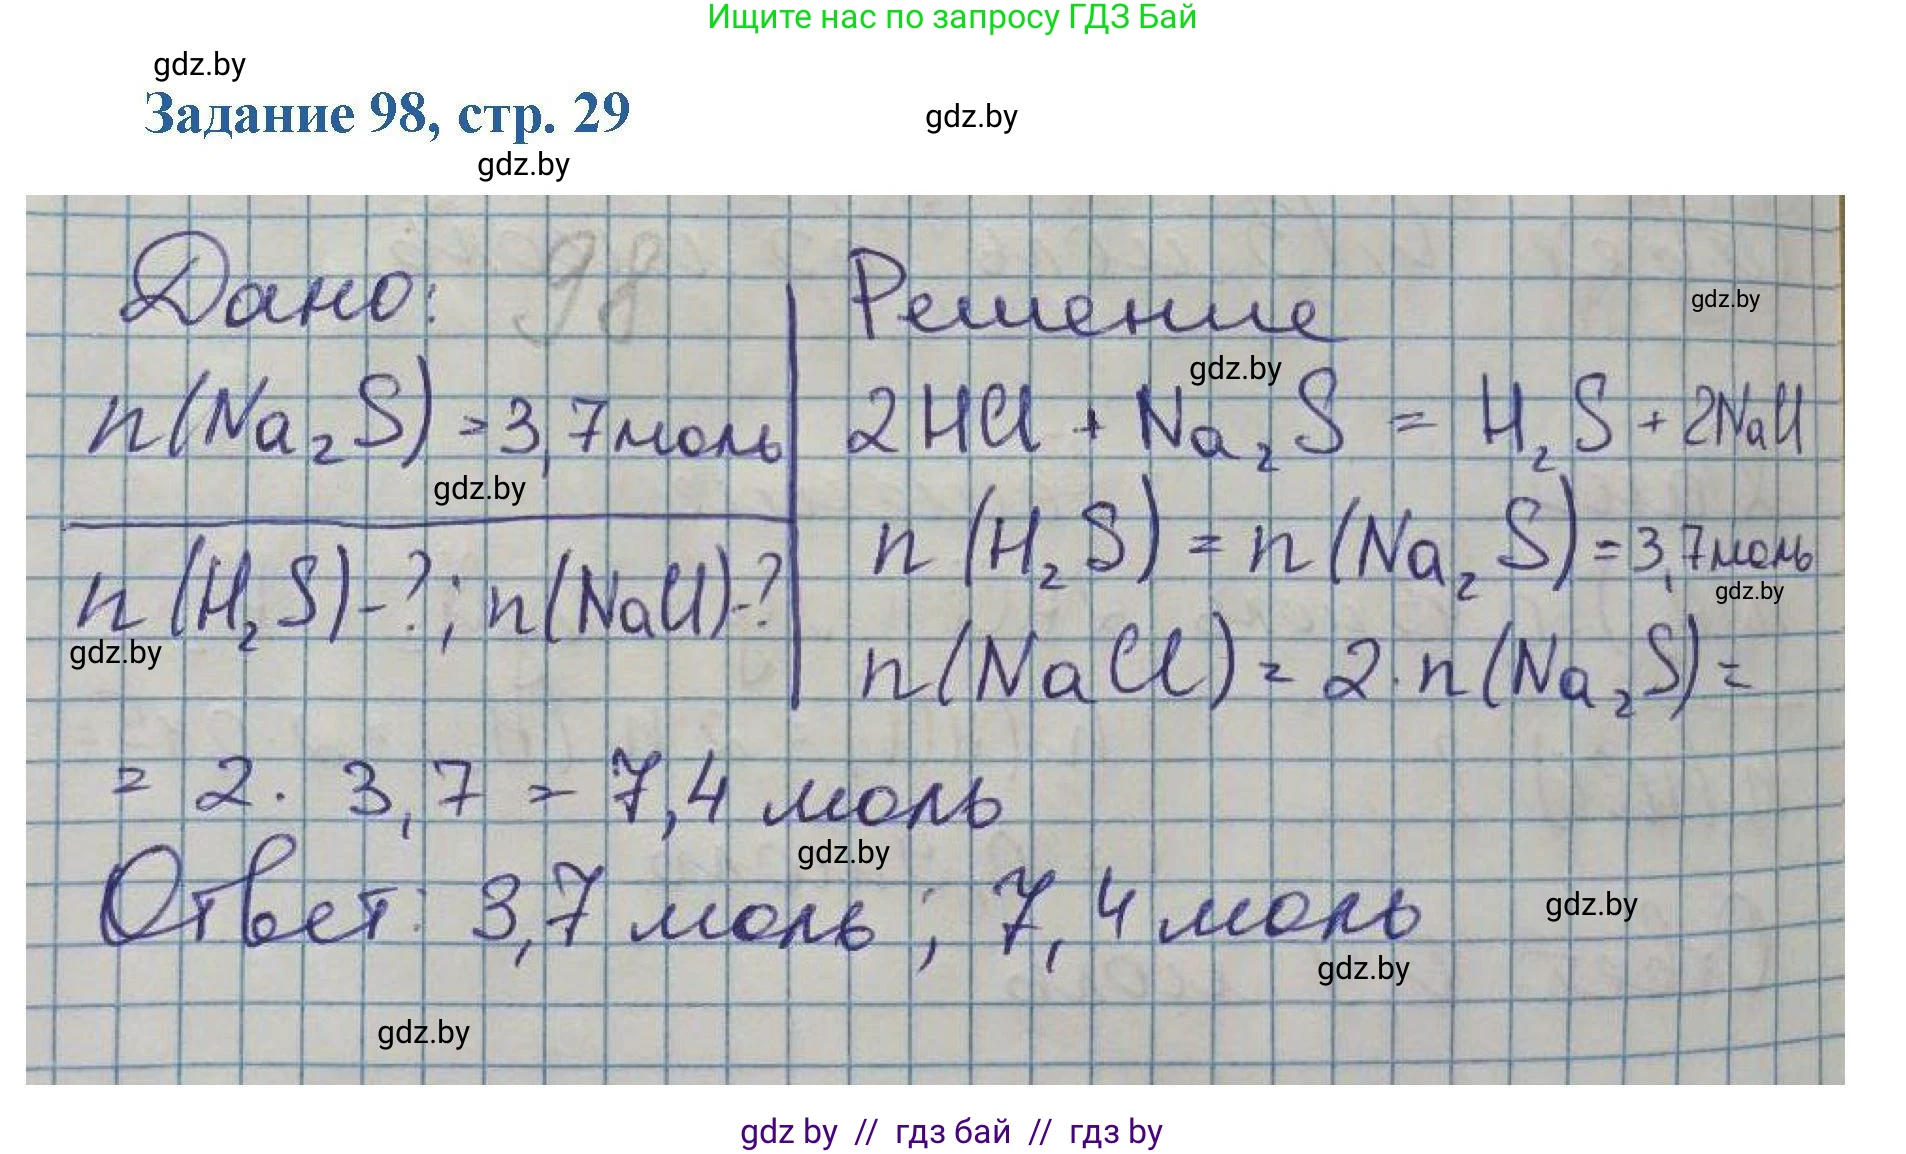 Ищите нас по запросу ГДЗ Бай
gdz.by
Задание 98, стр. 29
gdz.by
gdz.by
Дано: 98
n(Na₂S) = 3,7 моль
gdz.by
n(H₂S) - ?; n(NaCl) - ?
gdz.by
Решение
gdz.by
gdz.by
2HCl + Na₂S = H₂S + 2NaCl
n(H₂S) = n(Na₂S) = 3,7 моль
gdz.by
n(NaCl) = 2 · n(Na₂S) =
= 2 · 3,7 = 7,4 моль
gdz.by
Ответ: 3,7 моль; 7,4 моль
gdz.by
gdz.by
gdz.by
gdz by // гдз бай // гдз by